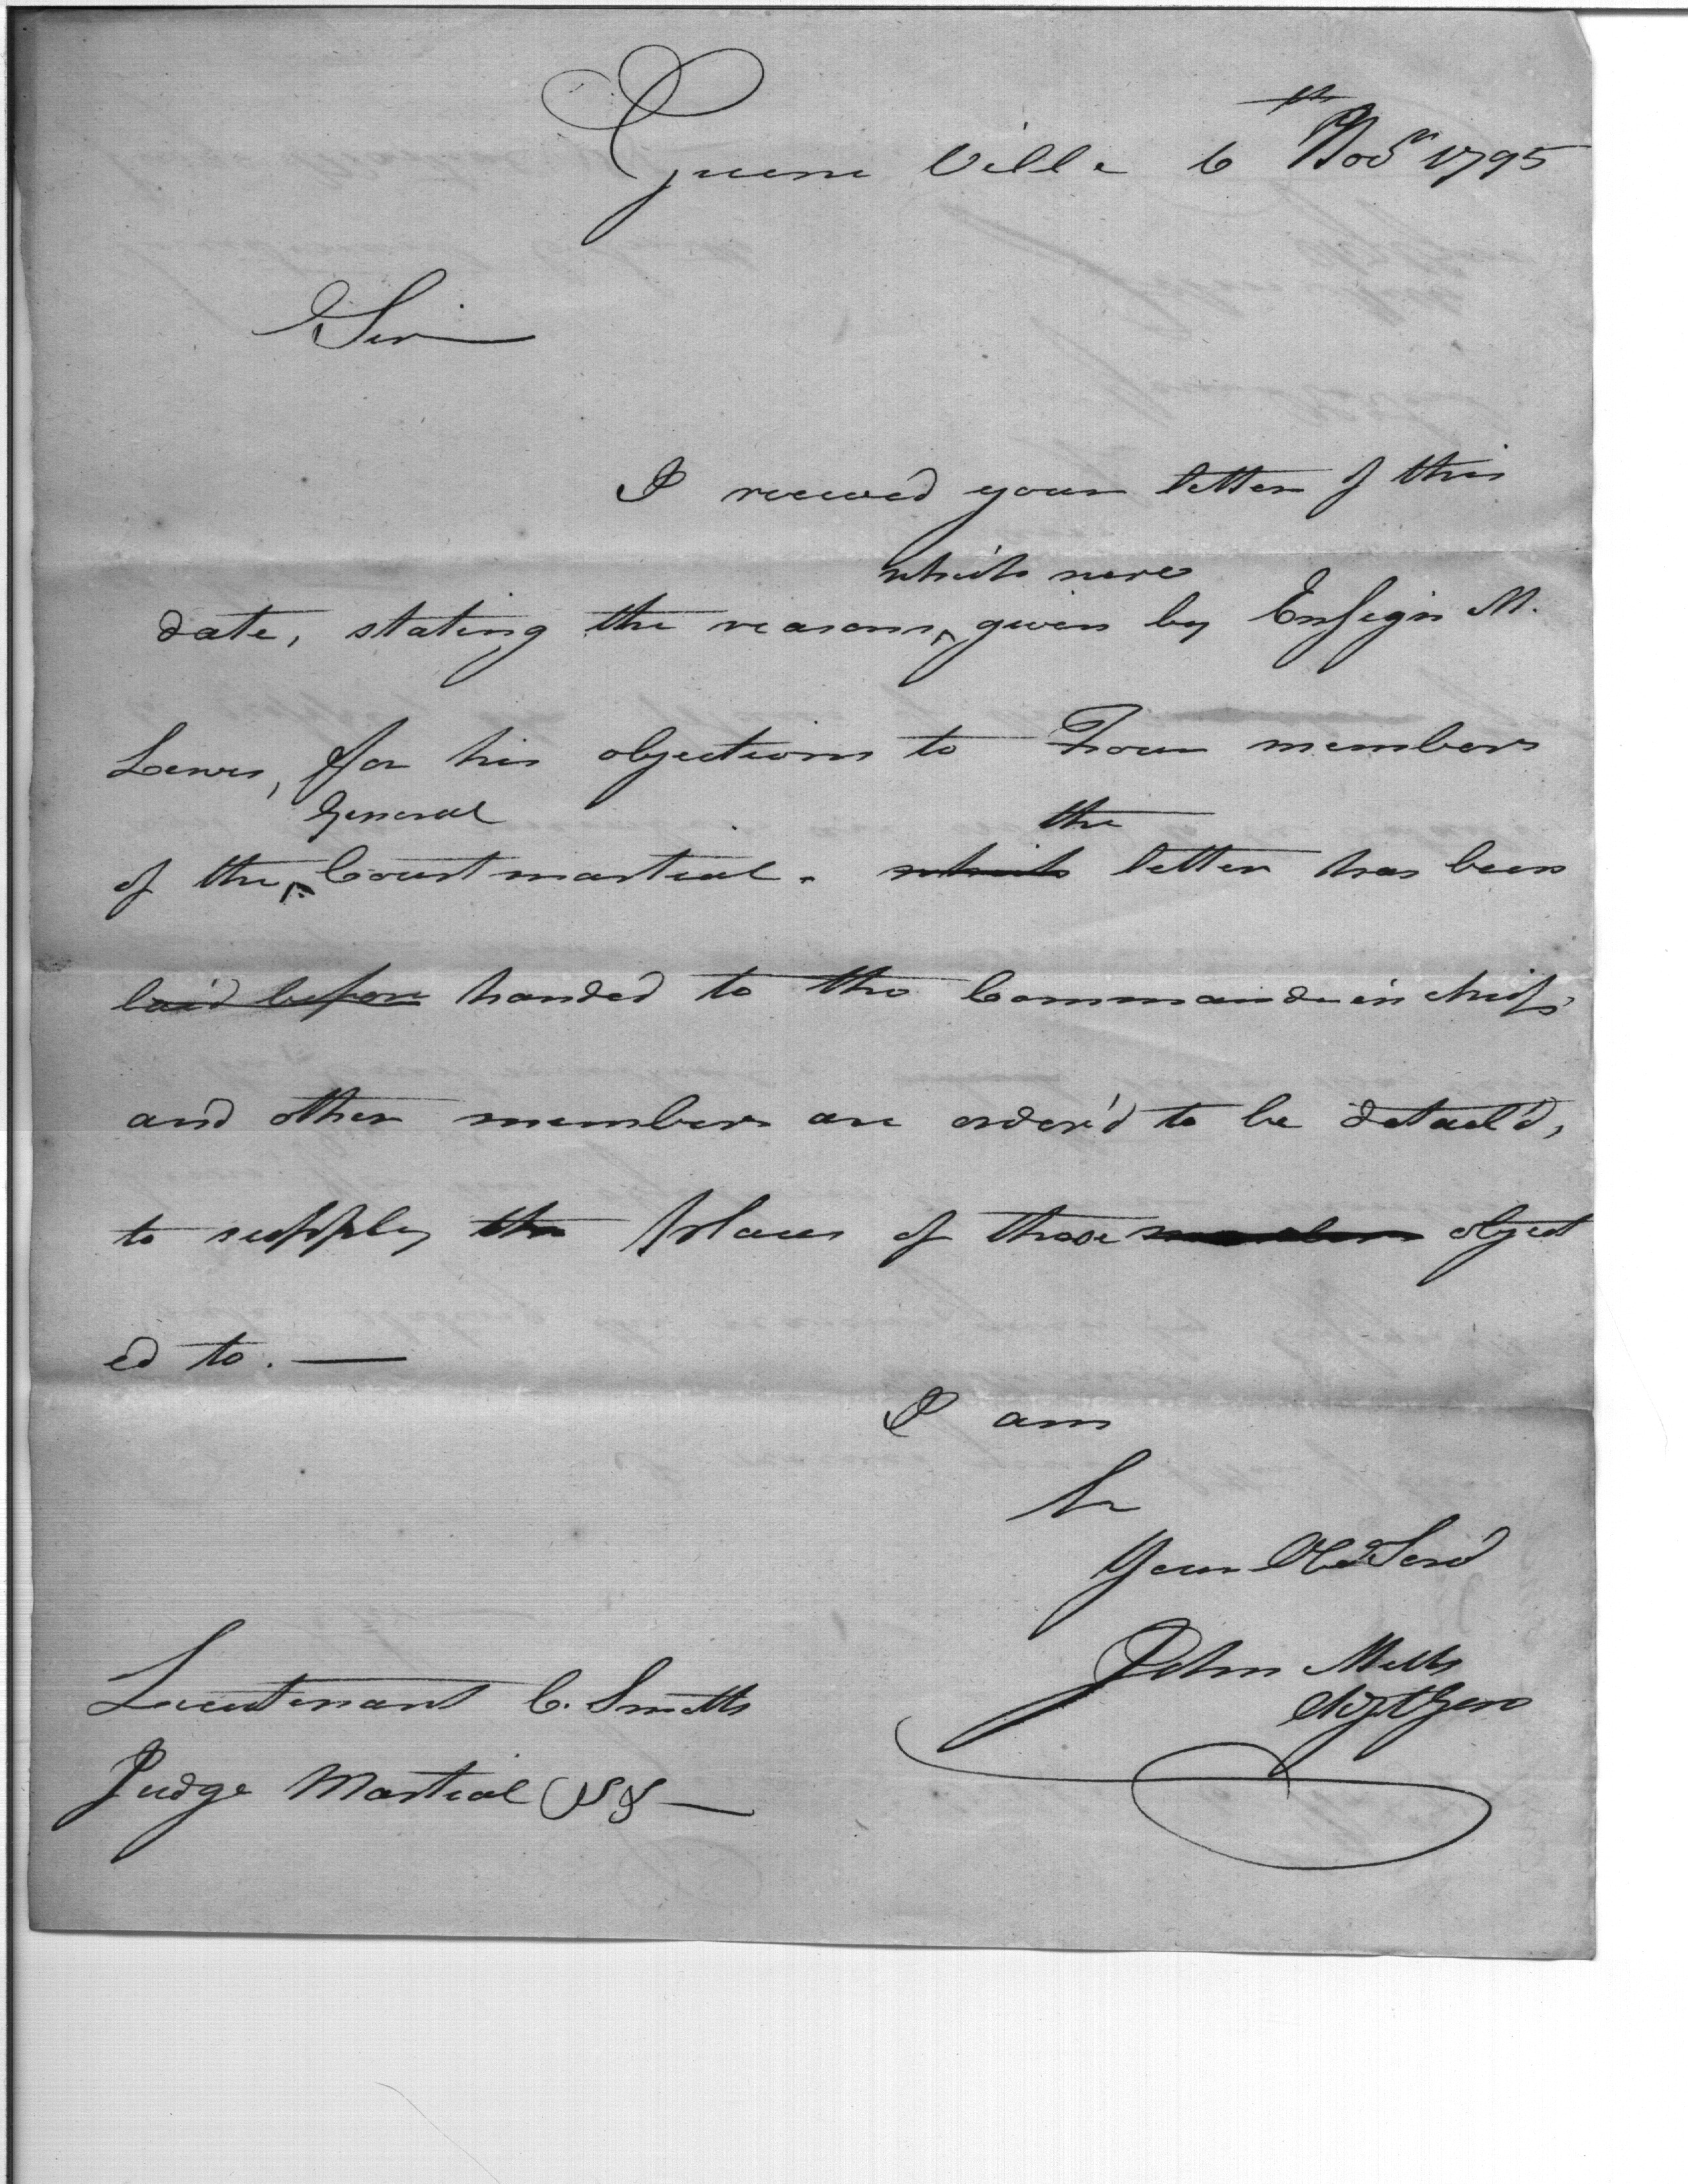 Greene Ville 6th Novr 1795
Sir
I received your letter of this
which were
date, stating the reasons, given by Ensign M.
Lewis, for his objections to Four members
General
the
of the Court martial. which letter has been
laid before handed to the Commander in chief,
and other members are order'd to be detail'd,
to supply the places of those members object
ed to. —
I am
Sr
Your Obd Servt
John Mills
Adjt Gen
Lieutenant C. Smith
Judge Martial